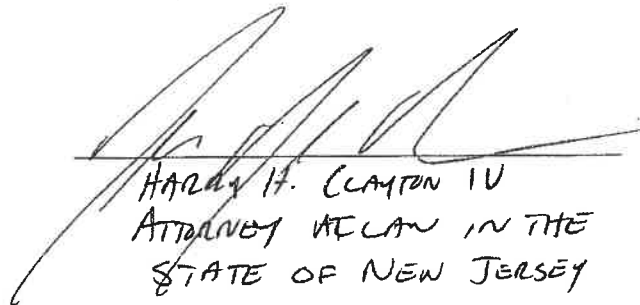 HARRY H. CLAYTON IV
ATTORNEY AT LAW IN THE
STATE OF NEW JERSEY